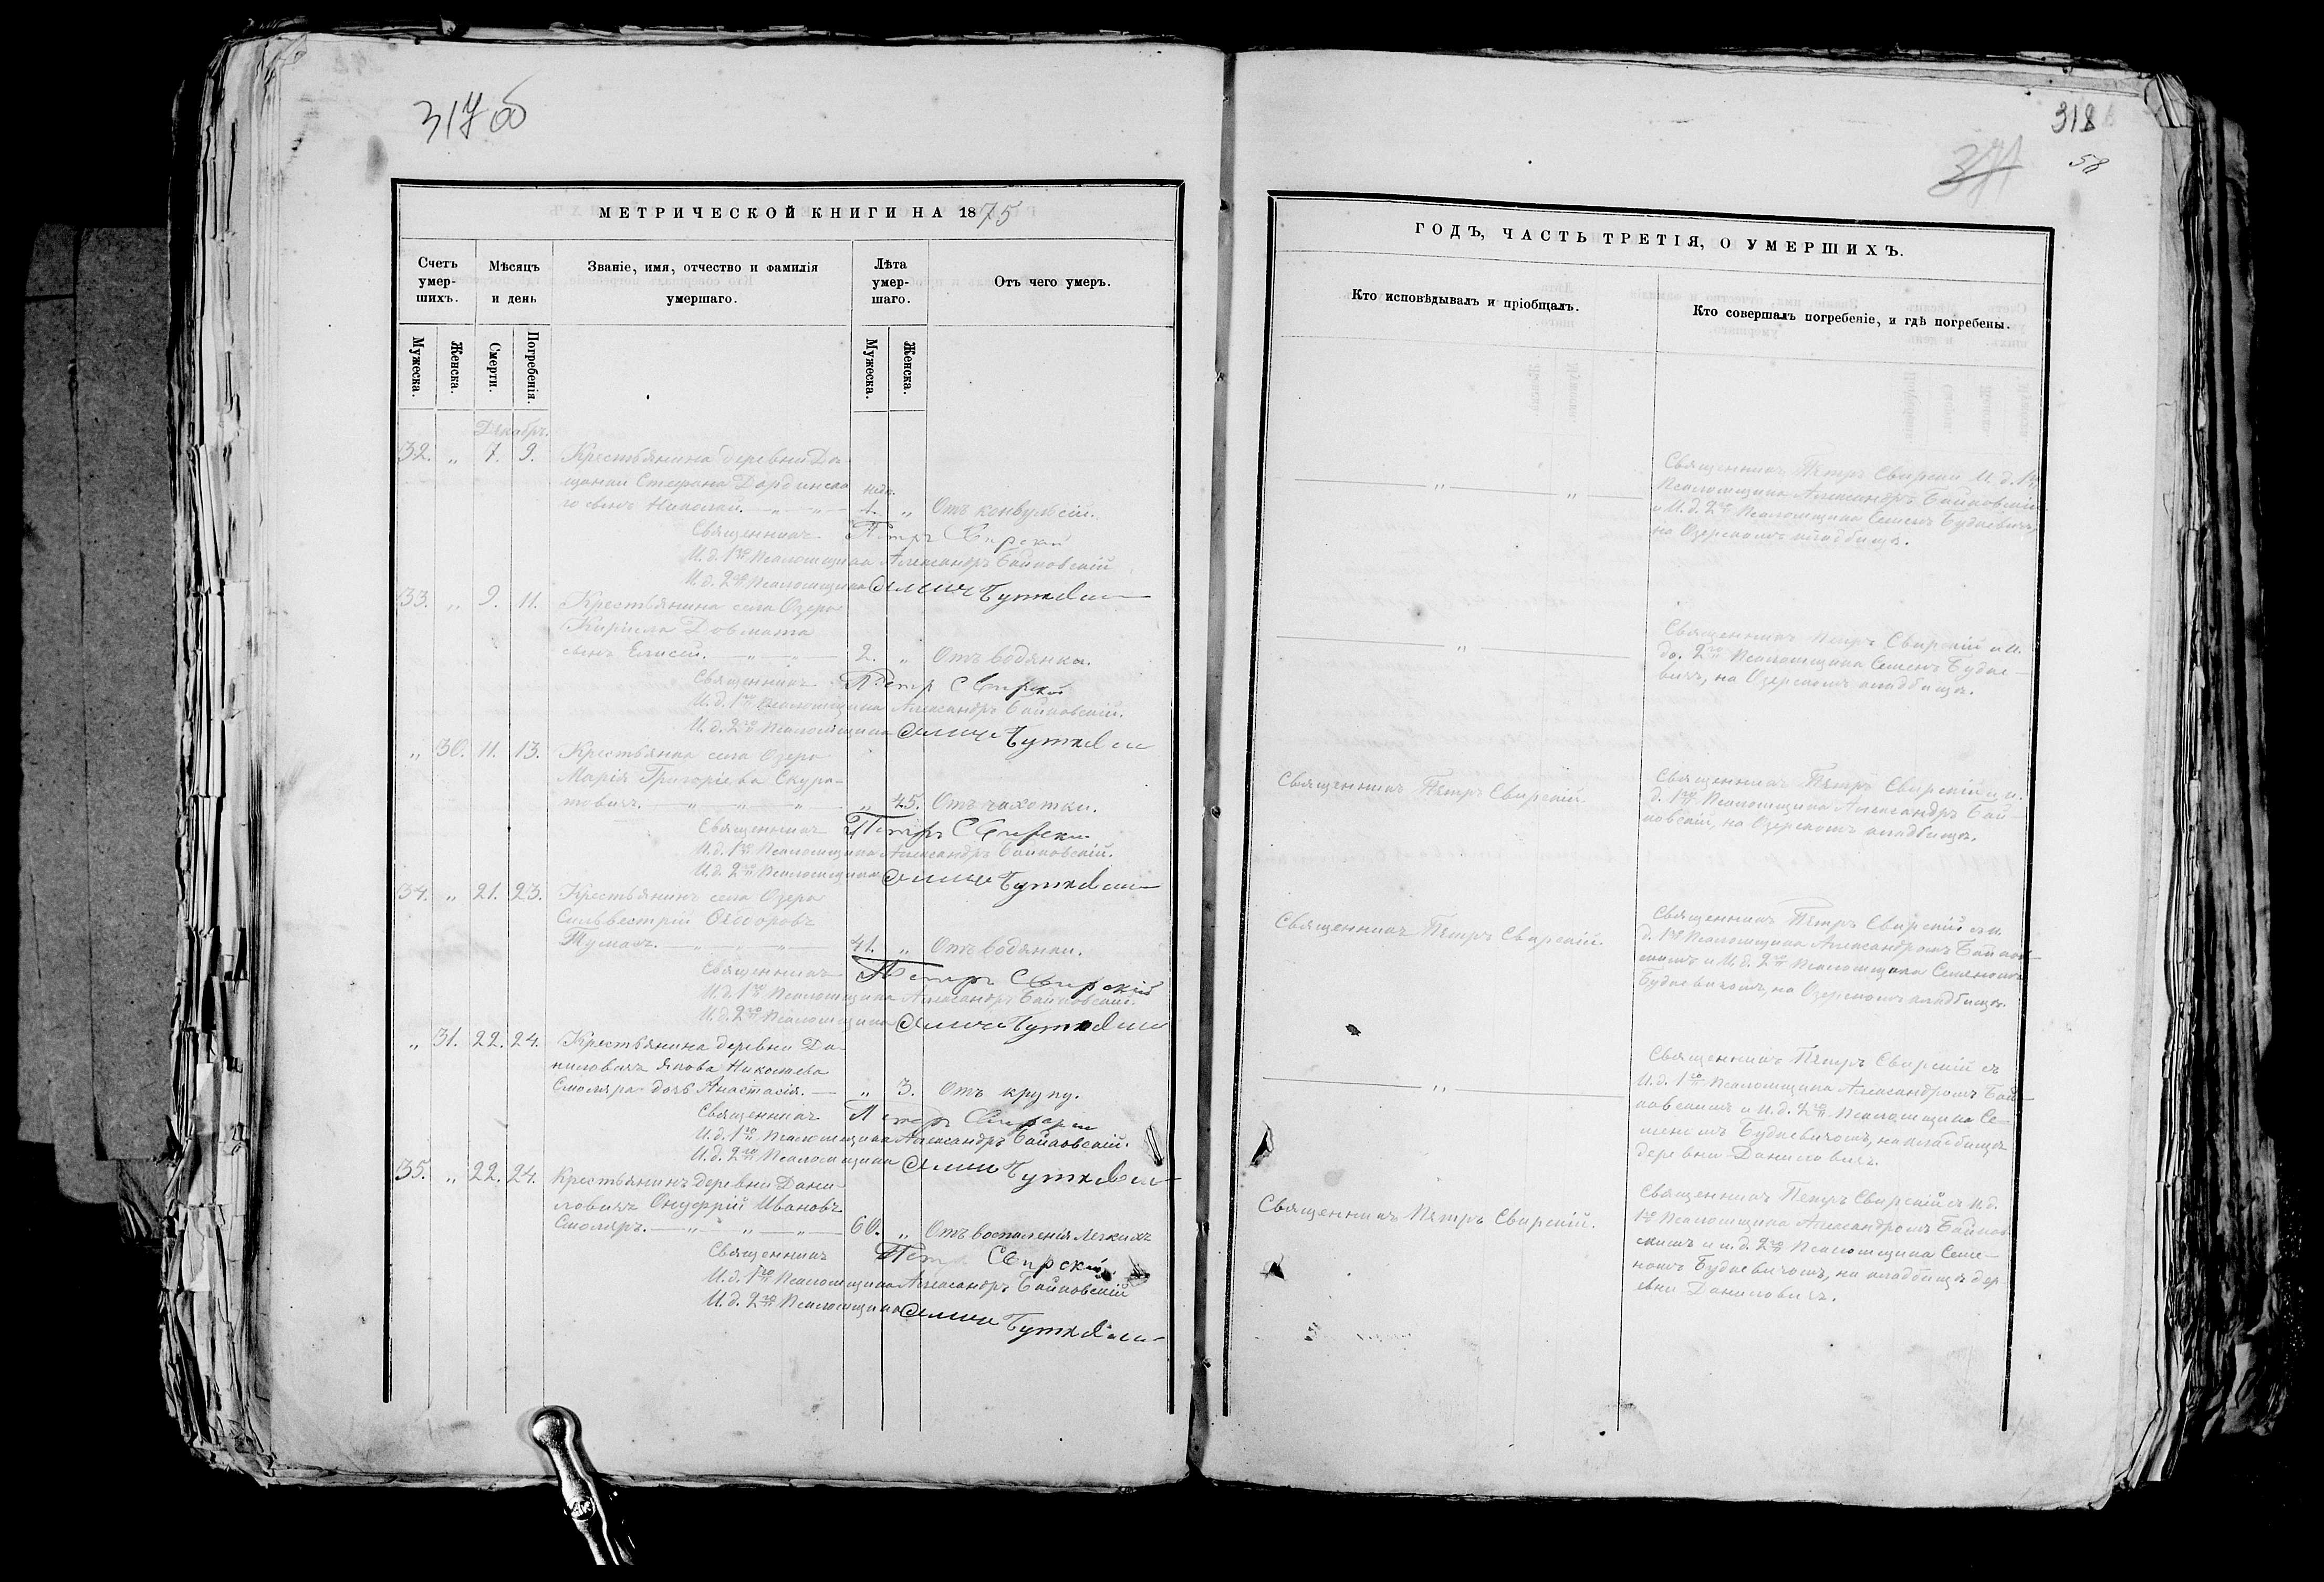 317 об
МЕТРИЧЕСКОЙ КНИГИ НА 1875
Счетъ умершихъ.
Мѣсяцъ и день
Званіе, имя, отчество и фамилія умершаго.
Лѣта умершаго.
Отъ чего умеръ.
Мужеска.
Женска.
Смерти.
Погребенія.
Мужеска.
Женска.
Декабрь.
32. „ 7. 9. Крестьянина деревни
Стефана
го сынъ Николай. — „ — „ — 1. „ Отъ конвульсій.
Священникъ Петръ Свирскій
И. д. 1го Псаломщика Александръ Байковскій
И. д. 2го Псаломщика
33. „ 9. 11. Крестьянина села Озера
Кирилла Довмата
сынъ Елисей. — „ — „ — 2. „ Отъ водянки.
Священникъ Петръ Свирскій
И. д. 1го Псаломщика Александръ Байковскій.
И. д. 2го Псаломщика
„ 30. 11. 13. Крестьянка села Озера
Марія Григоріева Скура-
товичъ. — „ — „ — „ — „ 45. Отъ чахотки.
Священникъ Петръ Свирскій
И. д. 1го Псаломщика Александръ Байковскій.
И. д. 2го Псаломщика
34. „ 21. 23. Крестьянинъ села Озера
Сильвестрій Ѳедоровъ
Тумашъ. — „ — „ — „ — 41. „ Отъ водянки.
Священникъ Петръ Свирскій
И. д. 1го Псаломщика Александръ Байковскій.
И. д. 2го Псаломщика
„ 31. 22. 24. Крестьянина деревни Да-
ниловичъ Якова Николаева
Смоляра дочь Анастасія. — „ 3. Отъ крупу.
Священникъ Петръ Свирскій
И. д. 1го Псаломщика Александръ Байковскій.
И. д. 2го Псаломщика
35. „ 22. 24. Крестьянинъ деревни Дани-
ловичъ Онуфрій Ивановъ
Смоляръ. — „ — „ — „ — 60. „ Отъ воспаленія легкихъ
Священникъ Петръ Свирскій
И. д. 1го Псаломщика Александръ Байковскій
И. д. 2го Псаломщика
318
58
ГОДЪ, ЧАСТЬ ТРЕТІЯ, О УМЕРШИХЪ.
Кто исповѣдывалъ и пріобщалъ.
Кто совершалъ погребеніе, и гдѣ погребены.
— „ — „ —
Священникъ Петръ Свирскій И. д. 1го
Псаломщика Александръ Байковскій
и И. д. 2го Псаломщика Семенъ Будкевичъ,
на Озерскомъ кладбищѣ.
— „ —
Священникъ Петръ Свирскій и И.
до. 2го Псаломщика Семенъ Будке-
вичъ, на Озерскомъ кладбищѣ.
Священникъ Петръ Свирскій.
Священникъ Петръ Свирскій и И.
д. 1го Псаломщика Александръ Бай-
ковскій, на Озерскомъ кладбищѣ.
Священникъ Петръ Свирскій.
Священникъ Петръ Свирскій съ И.
д. 1го Псаломщика Александромъ Байков-
скимъ и И. д. 2го Псаломщика Семеномъ
Будкевичомъ, на Озерскомъ кладбищѣ.
— „ —
Священникъ Петръ Свирскій съ
И. д. 1го Псаломщика Александромъ Бай-
ковскимъ и И. д. 2го Псаломщика Се-
меномъ Будкевичомъ, на кладбищѣ
деревни Даниловичъ.
Священникъ Петръ Свирскій.
Священникъ Петръ Свирскій съ И. д.
1го Псаломщика Александромъ Байков-
скимъ и и. д. 2го Псаломщика Семе-
номъ Будкевичомъ, на кладбищѣ дер
евни Даниловичъ.